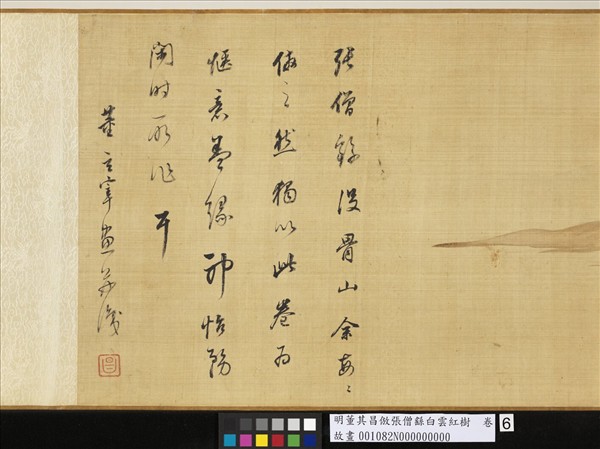 張僧繇沒骨山余每每
倣之然獨以此卷為
愜意蓋緣神怡務
閒時所作耳
董玄宰畫并識
明董其昌倣張僧繇白雲紅樹　卷 6
故畫 001082N000000000